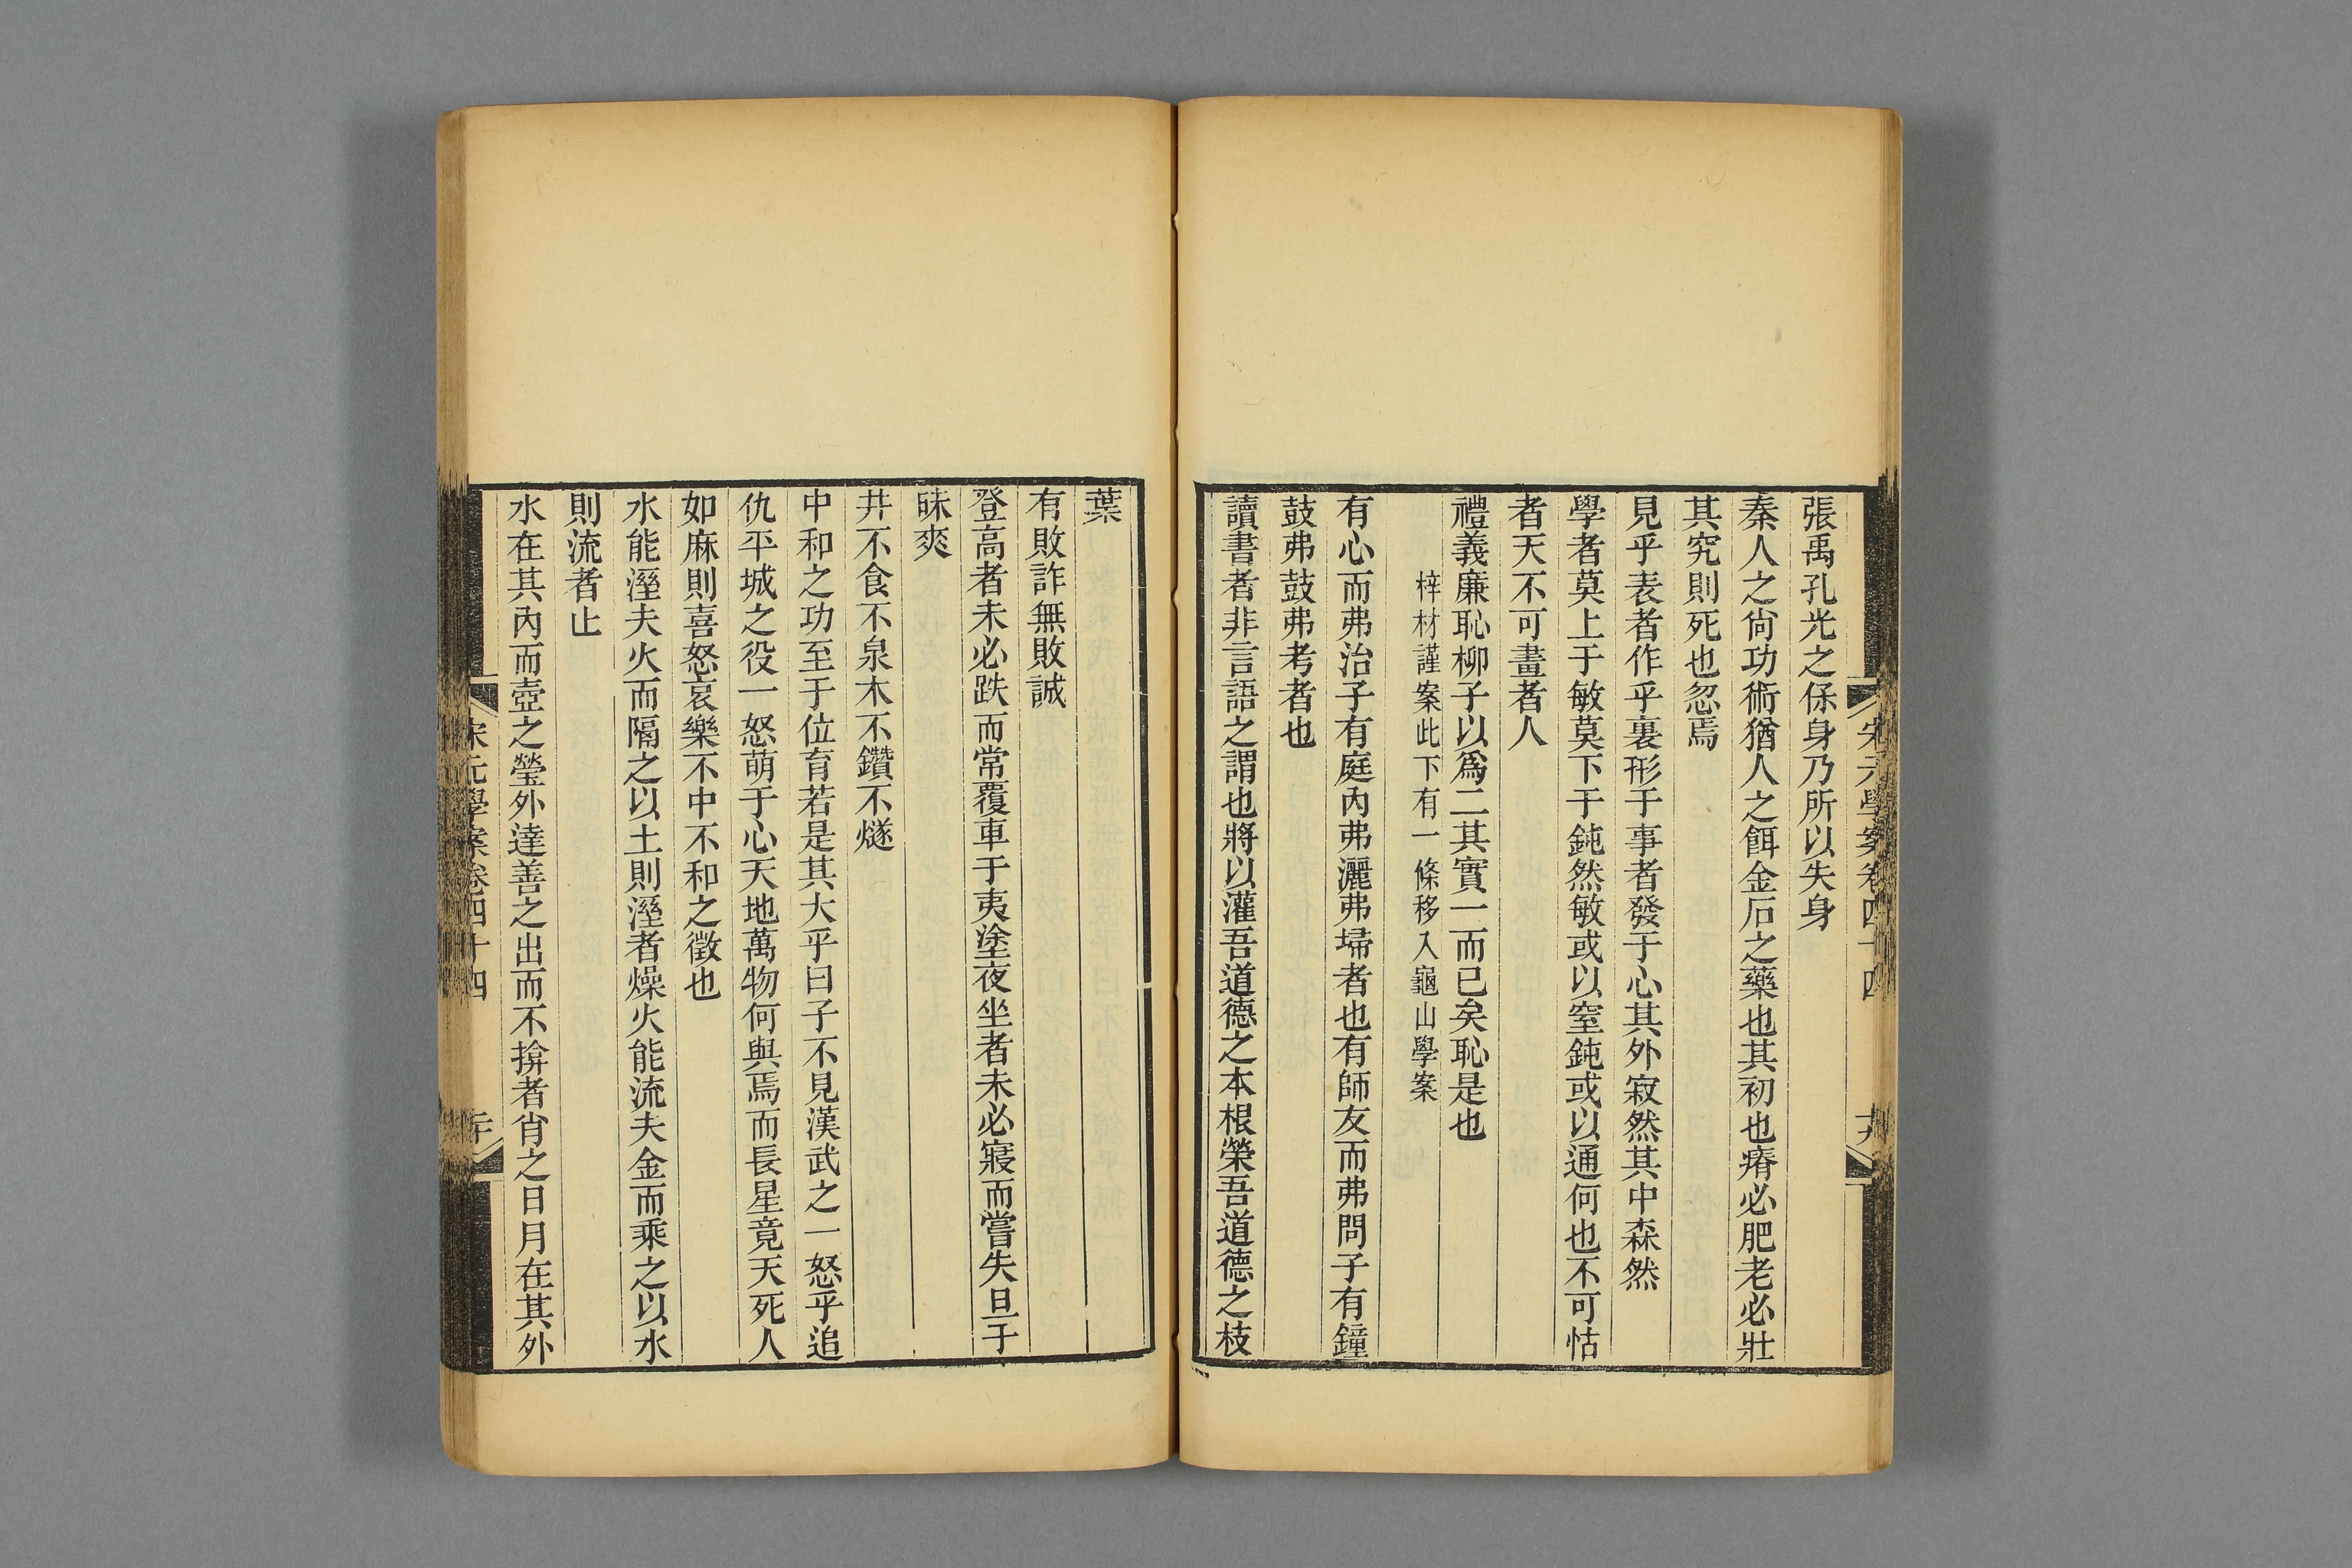 宋元學案卷四十四
張禹孔光之保身乃所以失身
秦人之尙功術猶人之餌金石之藥也其初也瘠必肥老必壯
其究則死也忽焉
見乎表者作乎裏形于事者發于心其外寂然其中森然
學者莫上于敏莫下于鈍然敏或以窒鈍或以通何也不可怙
者天不可畫者人
禮義廉恥柳子以爲二其實一而已矣恥是也
梓材謹案此下有一條移入龜山學案
有心而弗治子有庭內弗灑弗埽者也有師友而弗問子有鐘
鼓弗鼓弗考者也
讀書者非言語之謂也將以灌吾道德之本根榮吾道德之枝
葉
有敗詐無敗誠
登高者未必跌而常覆車于夷塗夜坐者未必寢而嘗失旦于
昧爽
井不食不泉木不鑽不燧
中和之功至于位育若是其大乎曰子不見漢武之一怒乎追
仇平城之役一怒萌于心天地萬物何與焉而長星竟天死人
如麻則喜怒哀樂不中不和之徵也
水能溼夫火而隔之以土則溼者燥火能流夫金而乘之以水
則流者止
水在其內而壺之瑩外達善之出而不揜者肖之日月在其外
宋元學案卷四十四